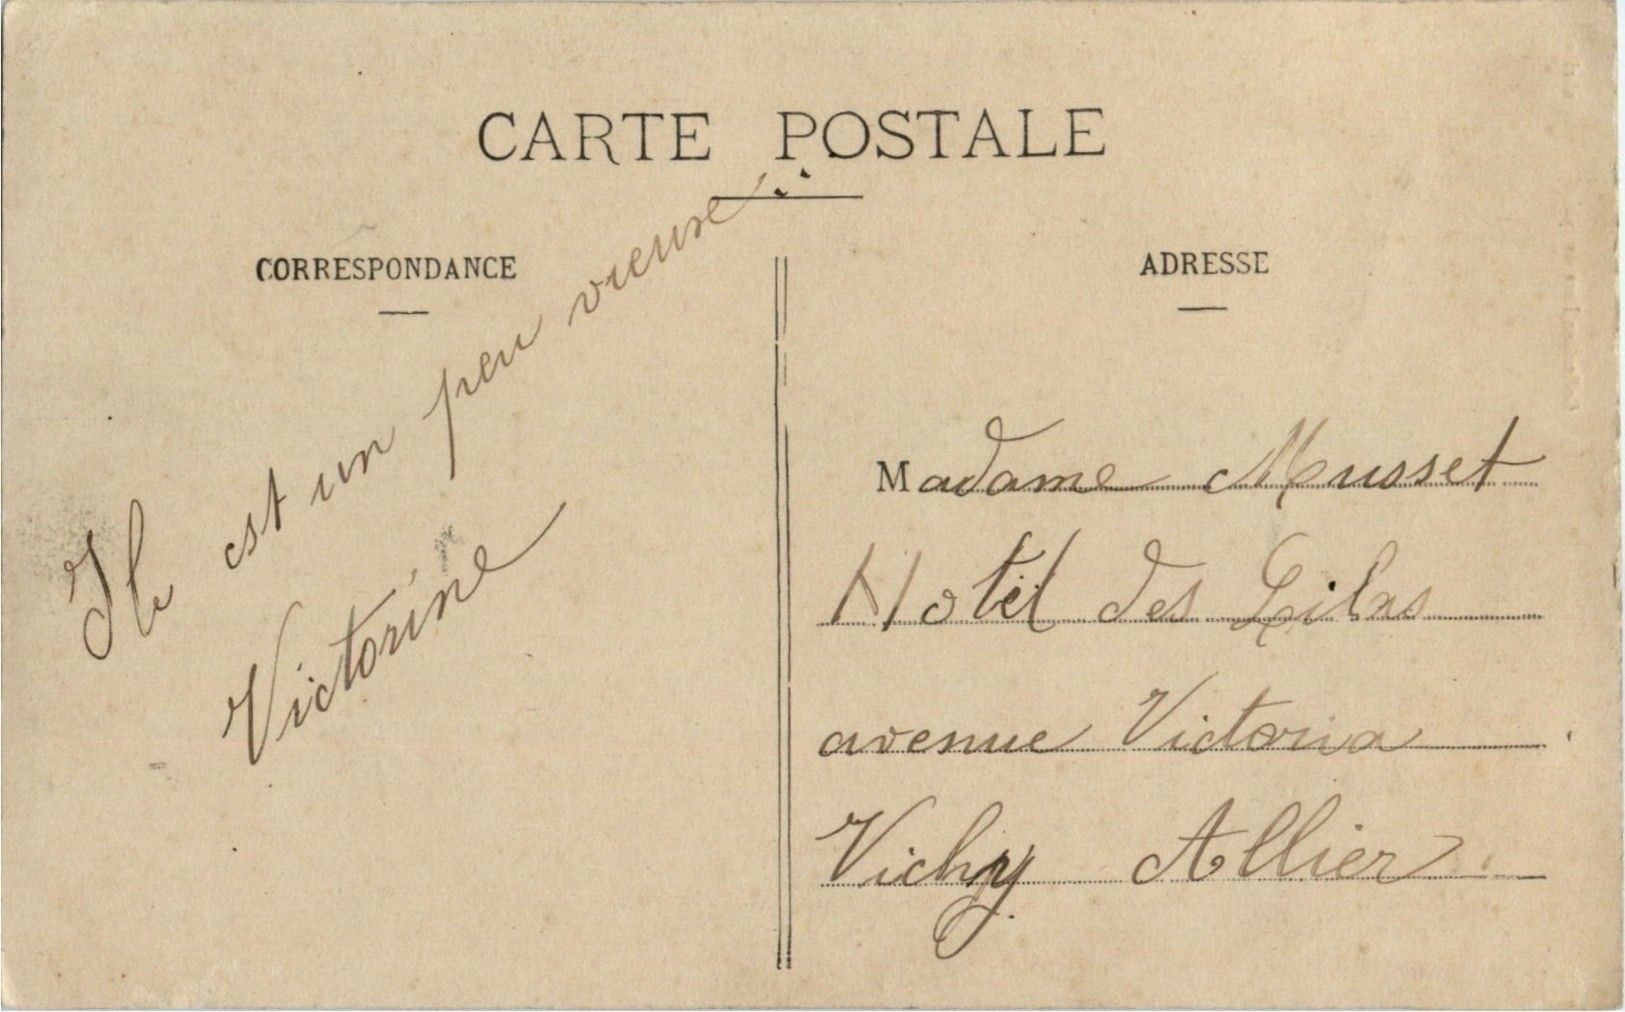 CARTE POSTALE
CORRESPONDANCE
Il est un peu vieux
Victorine
ADRESSE
Madame Musset
Hotel des Lilas
avenue Victoria
Vichy Allier